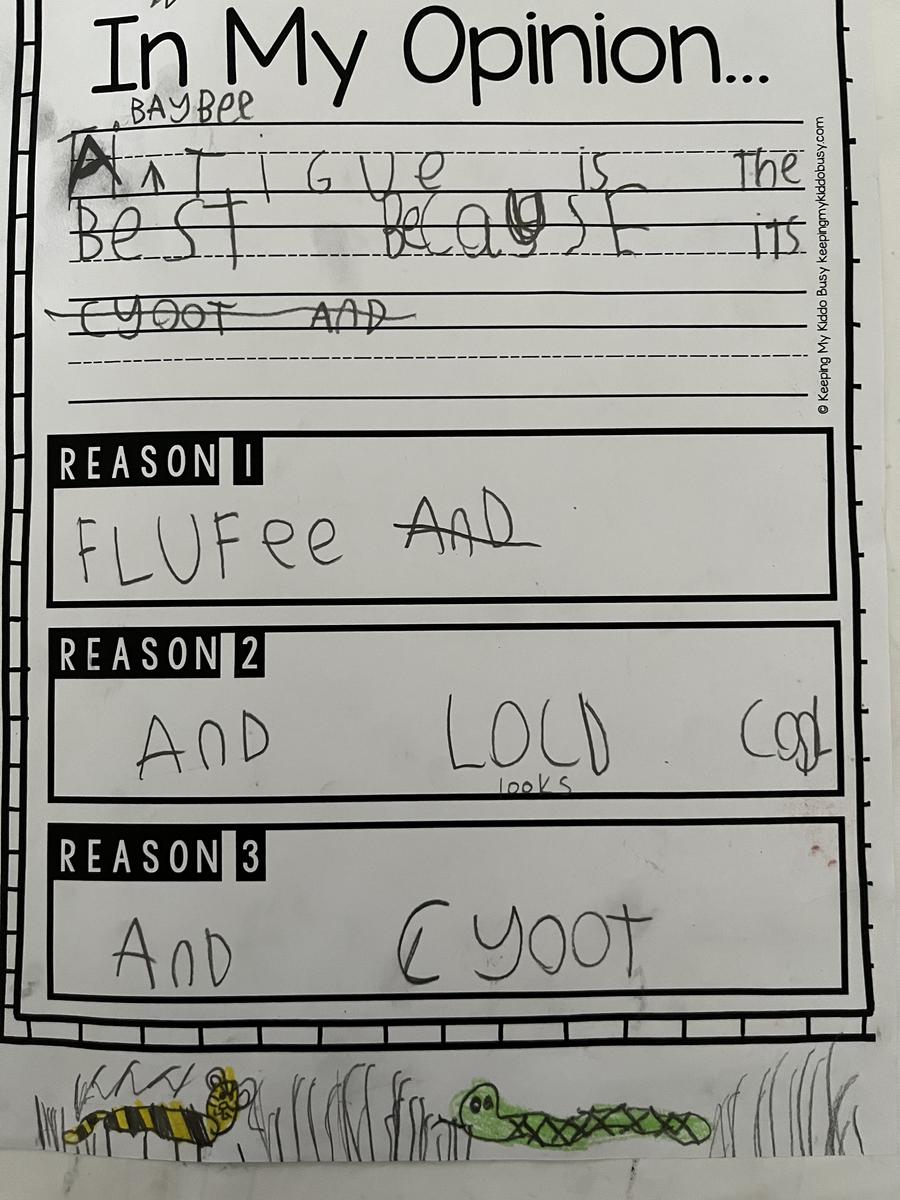 In My Opinion...
BAYBee
A ↑ TIGUe is The
BeST BecauSE iTS
CYOOT AND
REASON 1
FLUFee AnD
REASON 2
AnD LOCD
looks
REASON 3
AnD CYOOT
© Keeping My Kiddo Busy keepingmykiddobusy.com